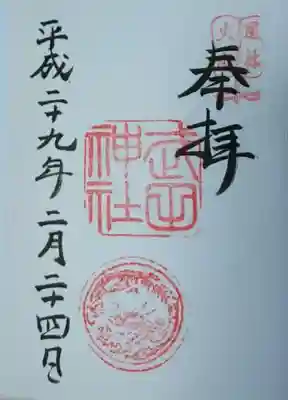 奉拝
武田
神社
平成二十九年二月二十四日